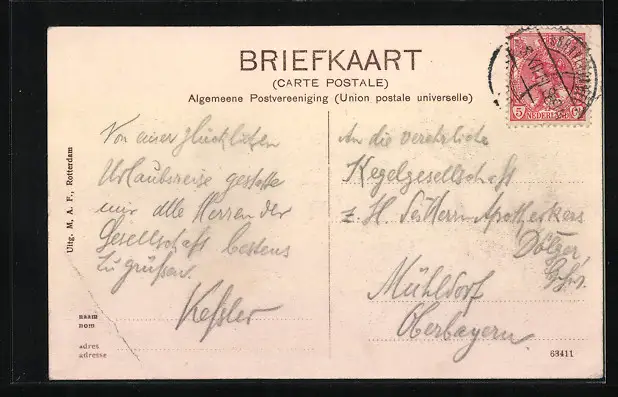 BRIEFKAART
(CARTE POSTALE)
Algemeene Postvereeniging (Union postale universelle)
5
NEDERLAND
Uitg. M. A. F., Rotterdam
Von einer glücklichen
Urlaubsreise gestatte
mir alle Herren der
Gesellschaft bestens
zu grüßen.
Keßler
An die verehrliche
Kegelgesellschaft
z. H. des Herrn Apothekers
Mühldorf
Oberbayern.
naam
nom
adres
adresse
63411